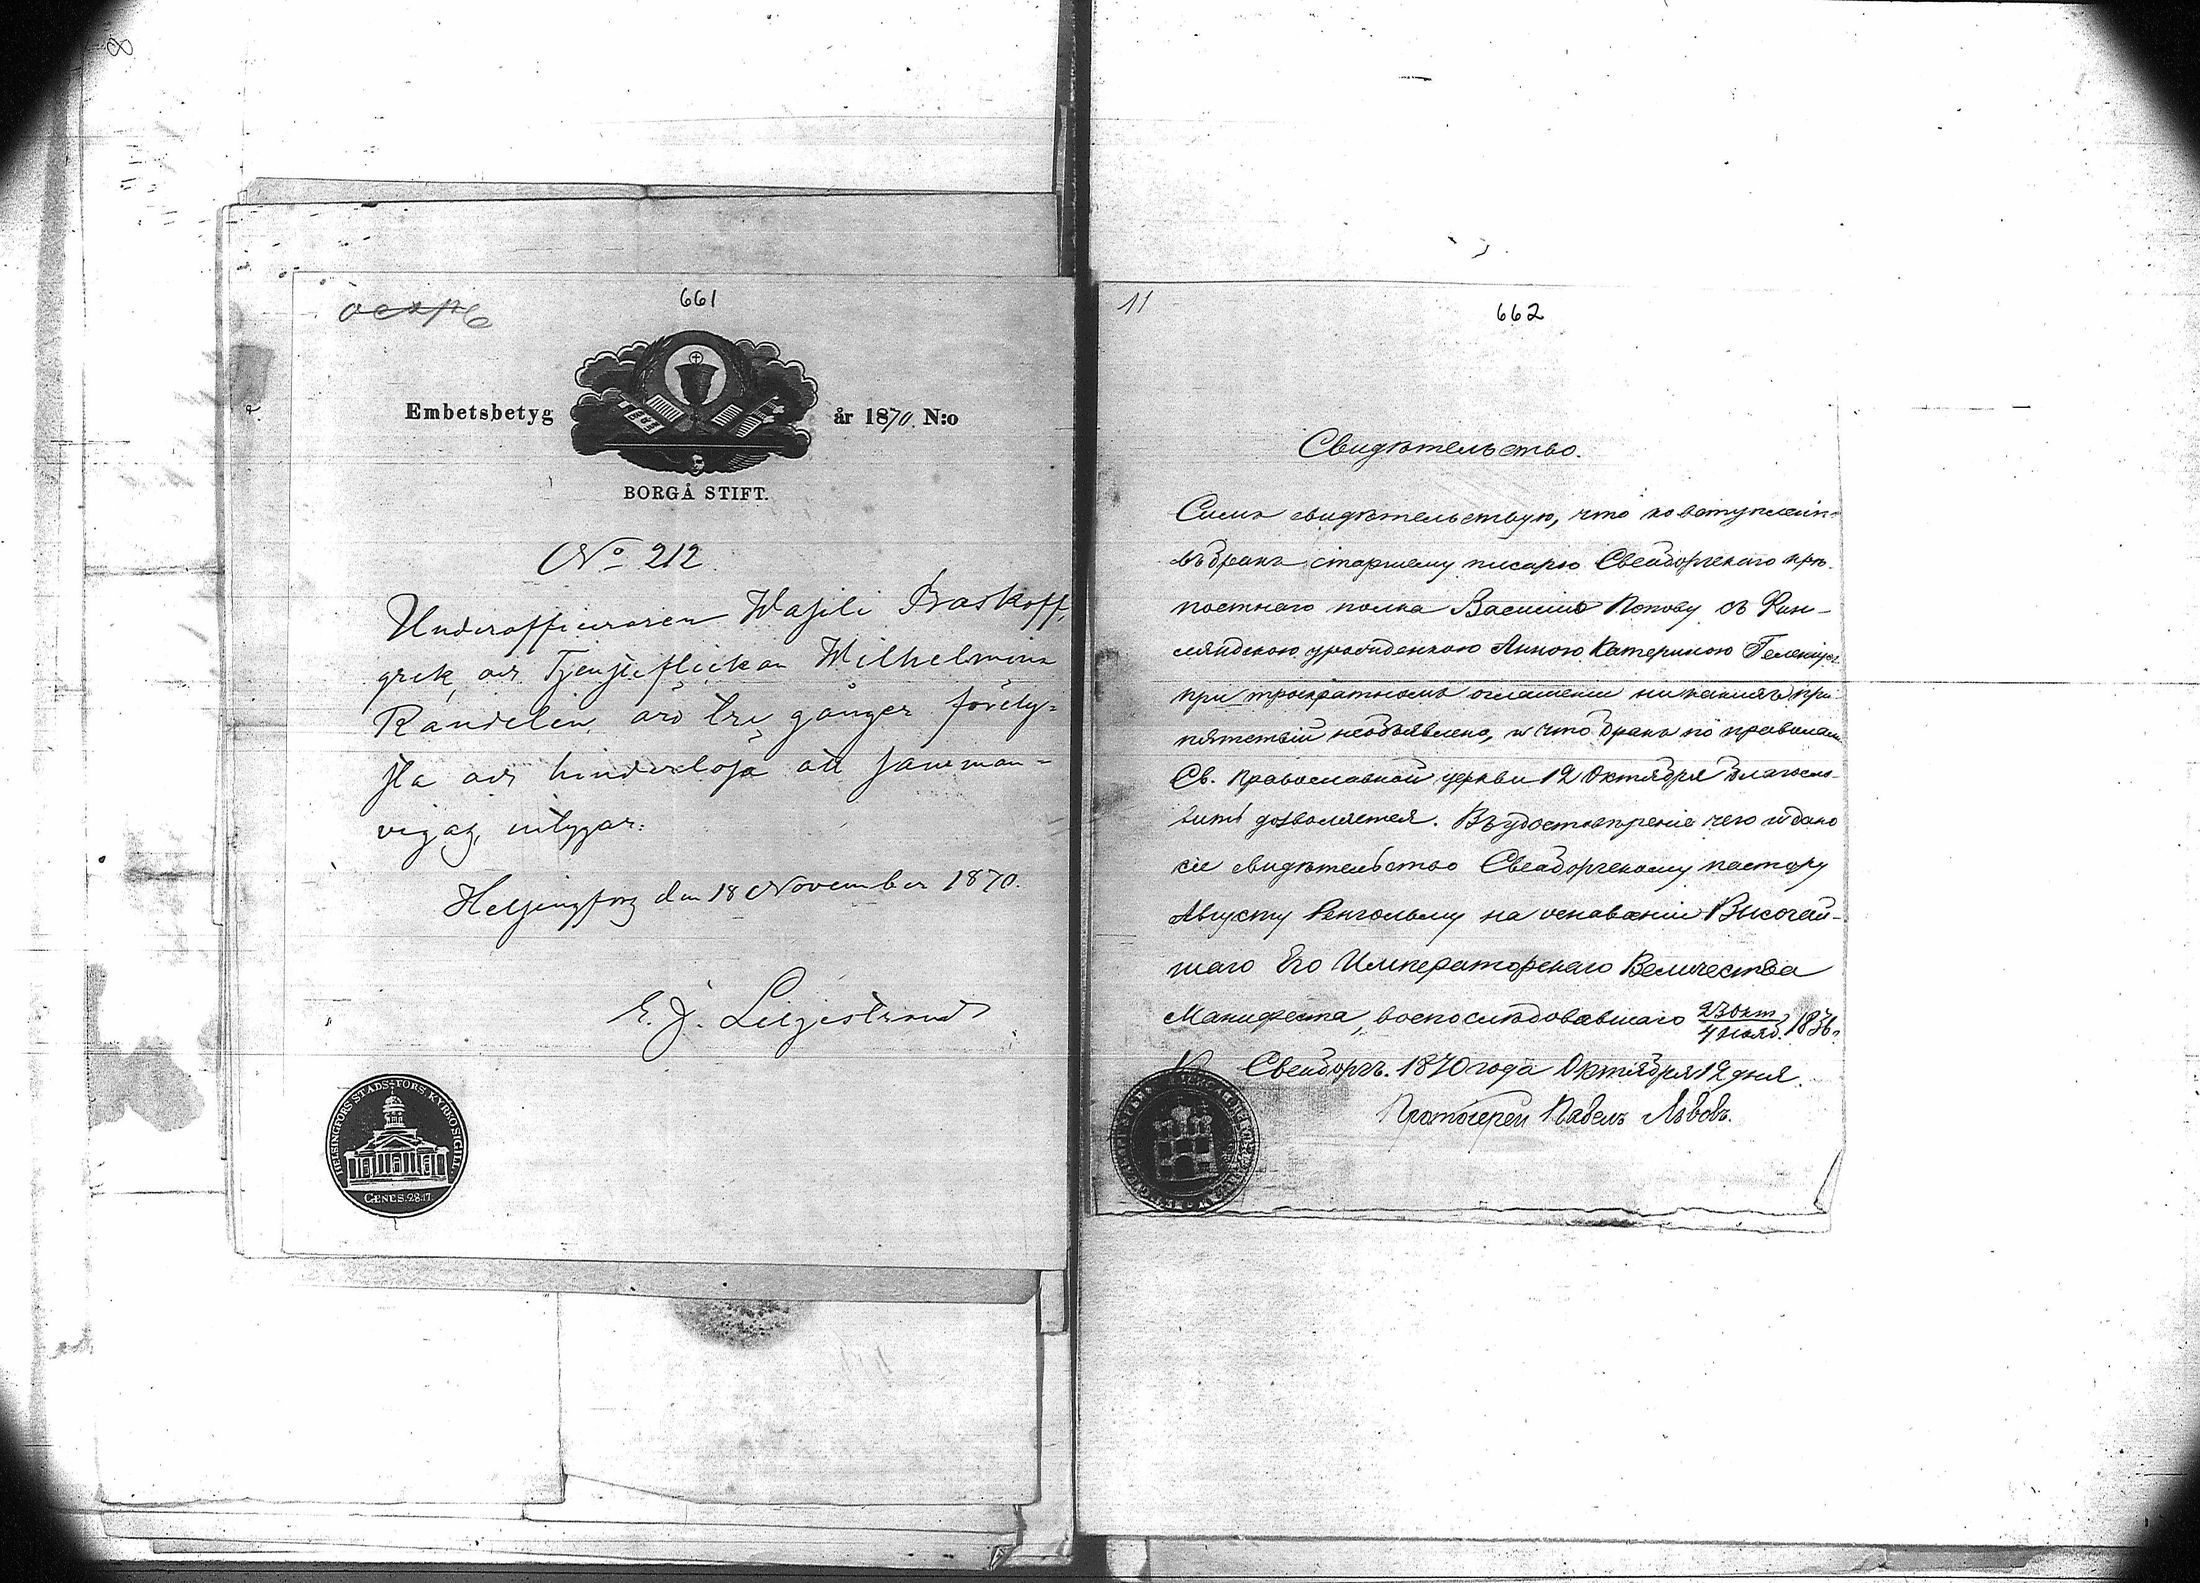 661
Embetsbetyg år 1870. N:o
BORGÅ STIFT.
No 212.
Underofficeraren Wasili Braskoff,
grek, och Tjensteflickan Wilhelmina
Randelin, äro tre gånger förely-
sta och hinderlösa att samman-
vigas, intygar:
Helsingfors den 18 November 1870.
E. J. Liljestrand
HELSINGFORS STADS-FÖRS. KYRKOSIGILL.
GENES. 28. 17.
11
662
Свидѣтельство.
Симъ свидѣтельствую, что ко вступленiю
въ бракъ старшему писарю Свеаборгскаго крѣ-
постнаго полка Василию Попову съ Фин-
ляндскою уроженкою Анною Катериною
при троекратномъ оглашенiи никакихъ пре-
пятствiй необъявлено, и что бракъ по правиламъ
Св. Православной церкви 12 Октября благосло-
вить дозволяется. Въ удостовѣренiе чего и дано
сiе свидѣтельство Свеаборгскому пастору
Августу на основанiи Высочай-
шаго Его Императорскаго Величества
Манифеста, воспослѣдовавшаго 23 Окт / 4 нояб. 1836.
Свеаборгъ. 1870 года Октября 12 дня.
Протоiерей Павелъ Львовъ.